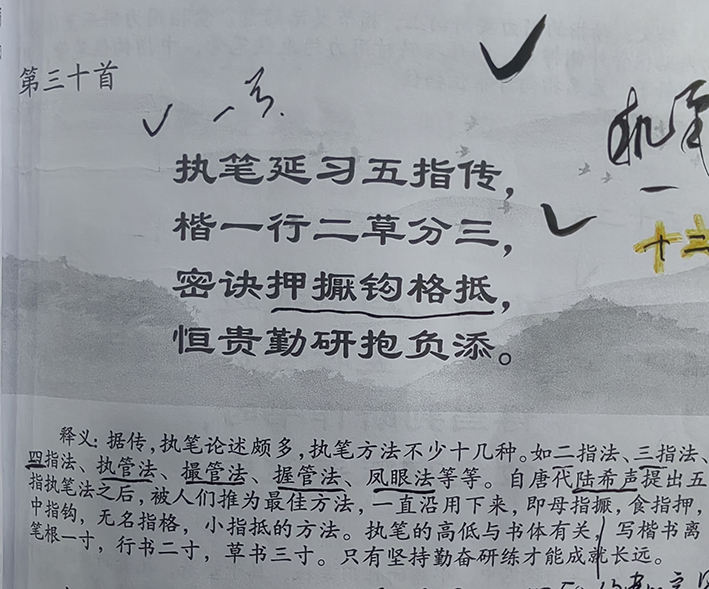 第三十首
执笔延习五指传，
楷一行二草分三，
密诀押擫钩格抵，
恒贵勤研抱负添。
释义：据传，执笔论述颇多，执笔方法不少十几种。如二指法、三指法、
四指法、执管法、撮管法、握管法、凤眼法等等。自唐代陆希声提出五
指执笔法之后，被人们推为最佳方法，一直沿用下来，即母指擫，食指押，
中指钩，无名指格，小指抵的方法。执笔的高低与书体有关，写楷书离
笔根一寸，行书二寸，草书三寸。只有坚持勤奋研练才能成就长远。